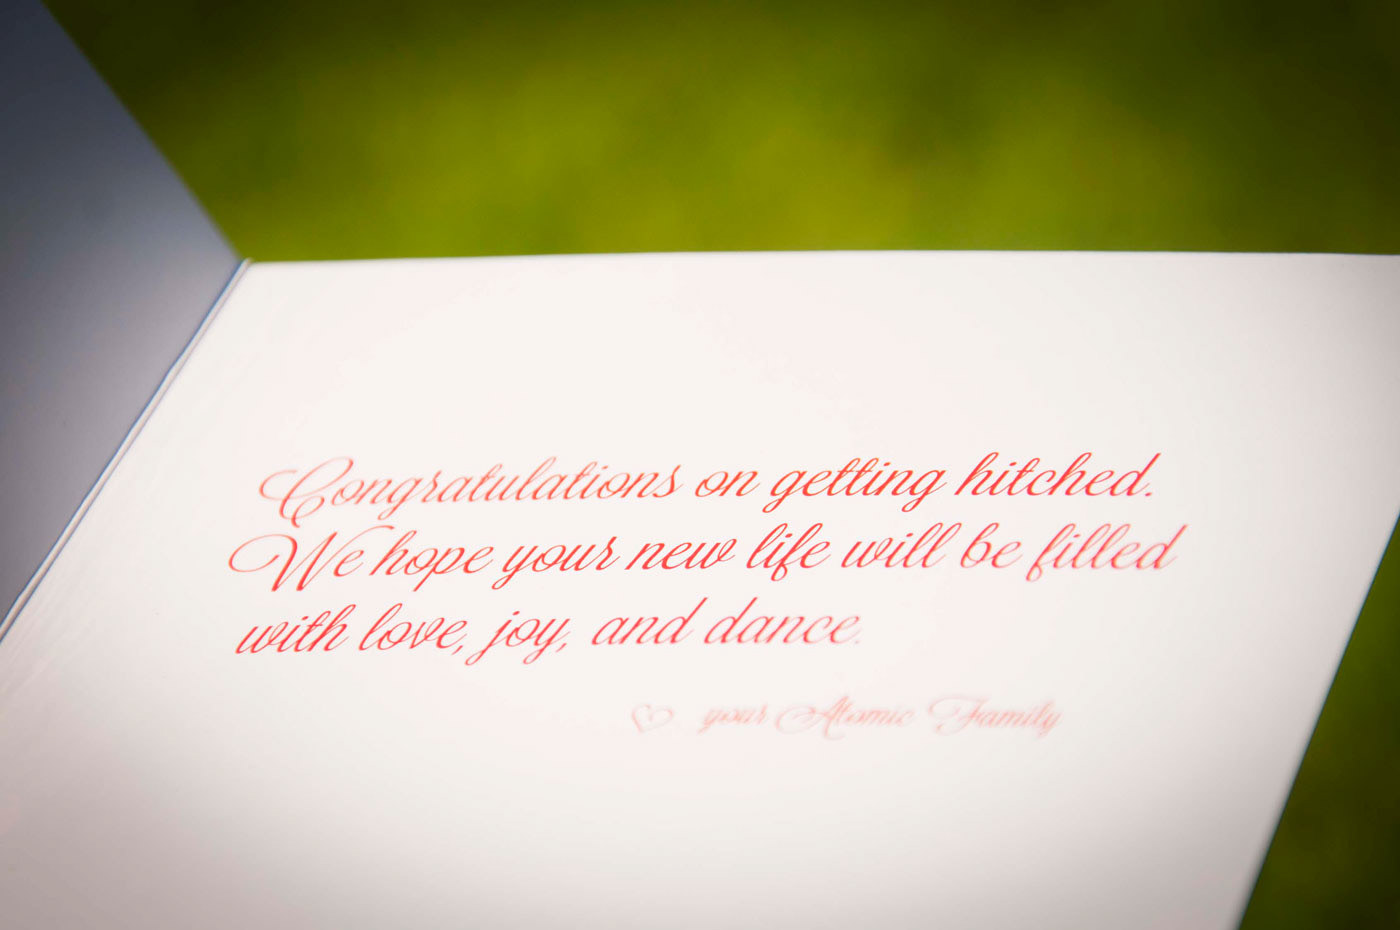 Congratulations on getting hitched.
We hope your new life will be filled
with love, joy, and dance.
♡ your Atomic Family